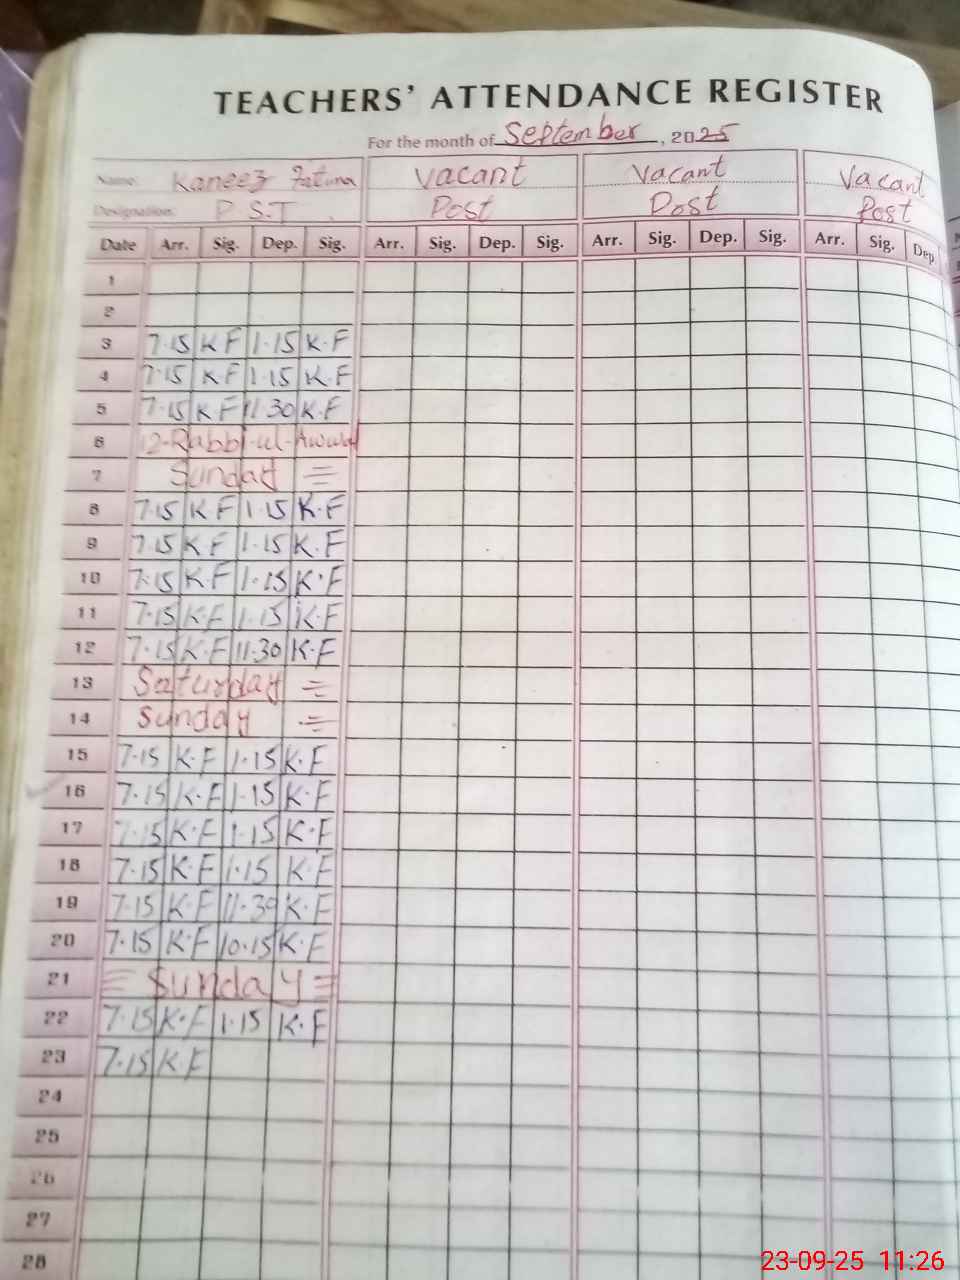 TEACHERS' ATTENDANCE REGISTER
For the month of September, 2025
Name: Kaneez Fatima Vacant Vacant Vacant
Designation: P.S.T. Post Post Post
Date Arr. Sig. Dep. Sig. Arr. Sig. Dep. Sig. Arr. Sig. Dep. Sig. Arr. Sig. Dep
1
2
3 7.15 K F 1.15 K.F
4 7.15 K F 1.15 K.F
5 7.15 K F 11.30 K.F
6 12-Rabbi-ul-Awwal
7 Sunday =
8 7.15 K F 1.15 K.F
9 7.15 K F 1.15 K.F
10 7.15 K.F 1.15 K.F
11 7.15 K.F 1.15 K.F
12 7.15 K.F 11.30 K.F
13 Saturday =
14 Sunday =
15 7.15 K.F 1.15 K.F
16 7.15 K.F 1.15 K.F
17 7.15 K.F 1.15 K.F
18 7.15 K.F 1.15 K.F
19 7.15 K.F 11.30 K.F
20 7.15 K.F 10.15 K.F
21 = Sunday =
22 7.15 K.F 1.15 K.F
23 7.15 K.F
24
25
26
27
28
23-09-25 11:26